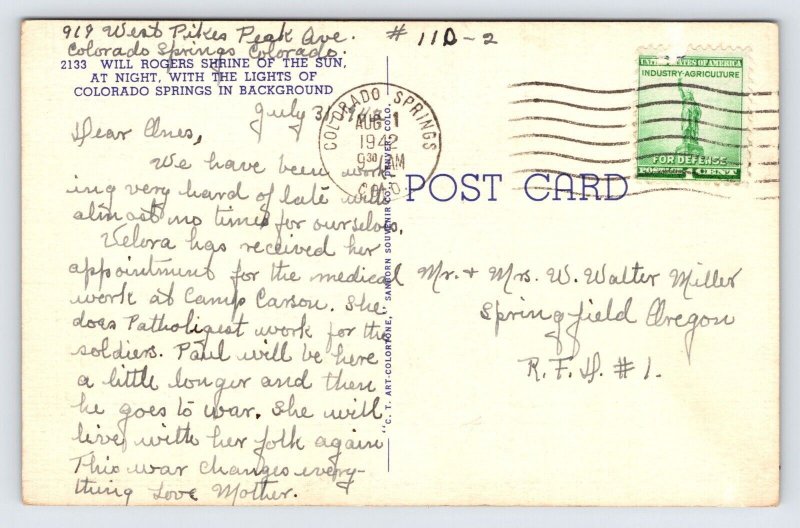 919 West Pikes Peak Ave.
Colorado Springs Colorado.
# 11D-2
2133 WILL ROGERS SHRINE OF THE SUN,
AT NIGHT, WITH THE LIGHTS OF
COLORADO SPRINGS IN BACKGROUND
July 31
Dear Ones,
We have been work-
ing very hard of late with
almost no time for ourselves.
Velora has received her
appointment for the medical
work at Camp Carson. She
does Patholigest work for the
soldiers. Paul will be here
a little longer and then
he goes to war. She will
live with her folk again
This war changes every-
thing Love Mother.
"C. T. ART-COLORTONE," SANBORN SOUVENIR CO., DENVER, COLO.
COLORADO SPRINGS
AUG 1
1942
9 30 AM
COLO.
UNITED STATES OF AMERICA
INDUSTRY-AGRICULTURE
FOR DEFENSE
POSTAGE CENT
POST CARD
Mr. + Mrs. W. Walter Miller
Springfield Oregon
R.F.D. #1.